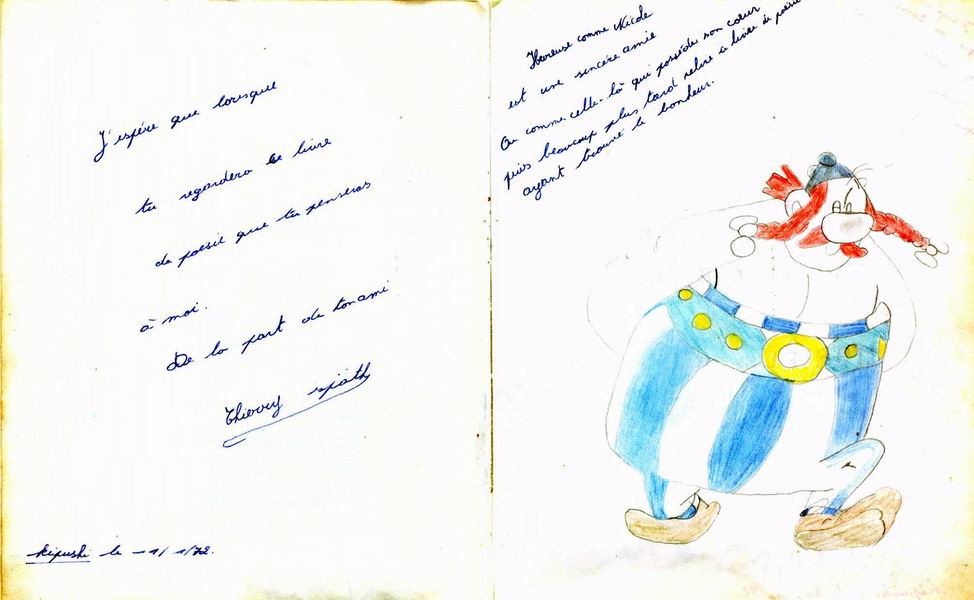 J'espère que lorsque
tu regardera ce livre
de poésie que tu penseras
à moi.
De la part de ton ami
Thierry Späth
Kipushi le -1/ 1/72.
Heureuse comme Nicole
est une sincère amie
Ou comme celle-là qui possède son cœur
puis beaucoup plus tard relire le livre de poésie
ayant trouvé le bonheur.